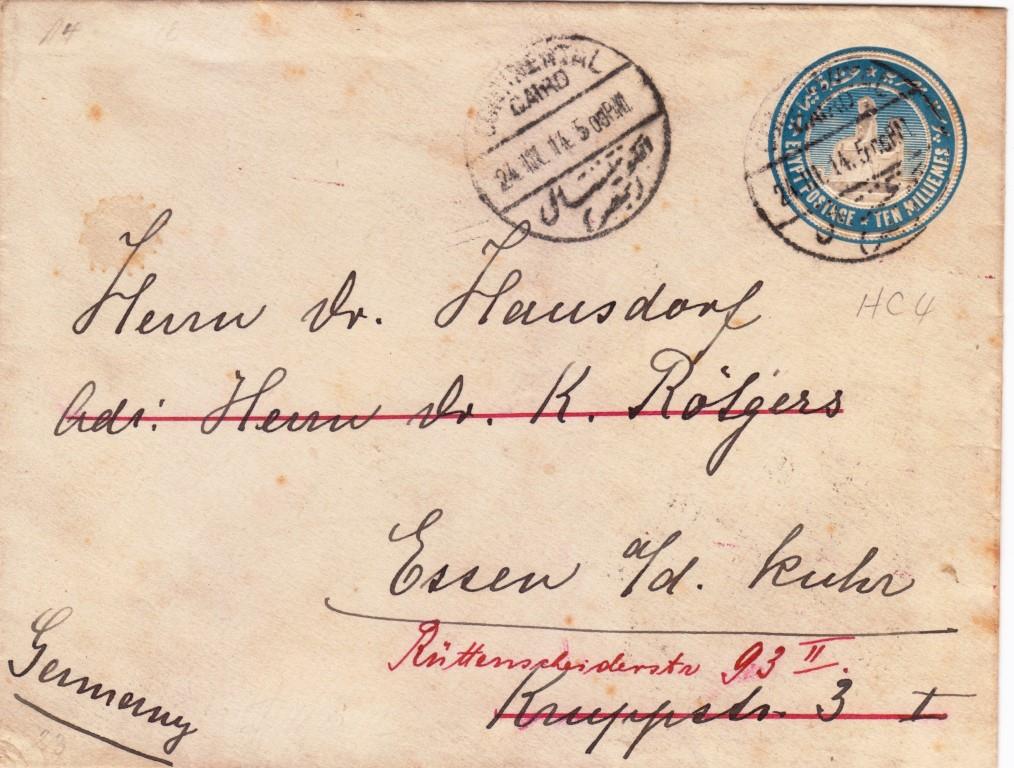 CONTINENTAL
CAIRO
24. III. 14. 5 00PM
EGYPT POSTAGE - TEN MILLIEMES
CAIRO
HC4
Herrn Dr. Hausdorf
Adr: Herrn Dr. K. Rötgers
Essen a/d. Ruhr
Rüttenscheiderstr 93 II.
Kruppstr. 3 I
Germany